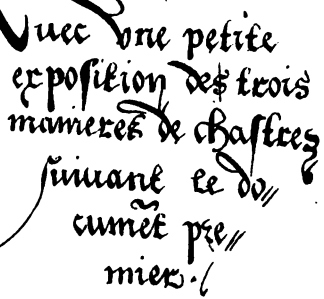 Auec vne petite
exposition des trois
manieres de chastrez
suiuant le do//
cumẽt pre//
mier.